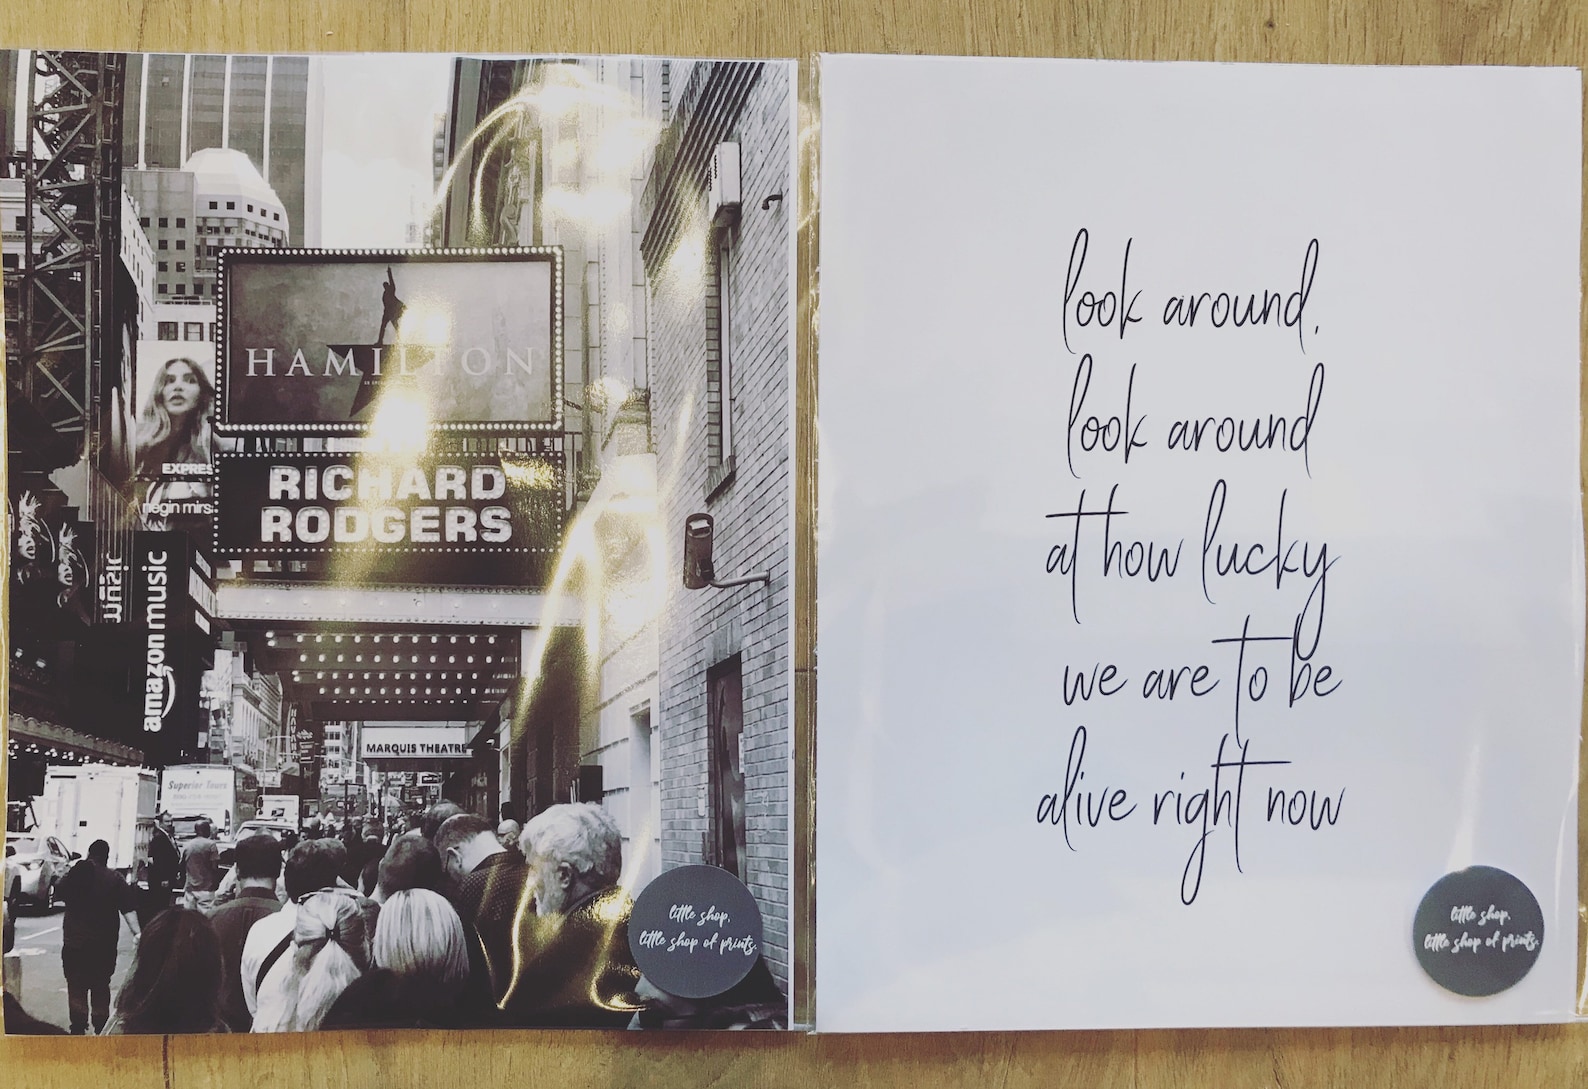 HAMILTON
RICHARD
RODGERS
EXPRES
negin mirs
music
amazon music
MARQUIS THEATRE
Superior Tours
little shop,
little shop of prints.
look around,
look around
at how lucky
we are to be
alive right now
little shop,
little shop of prints.